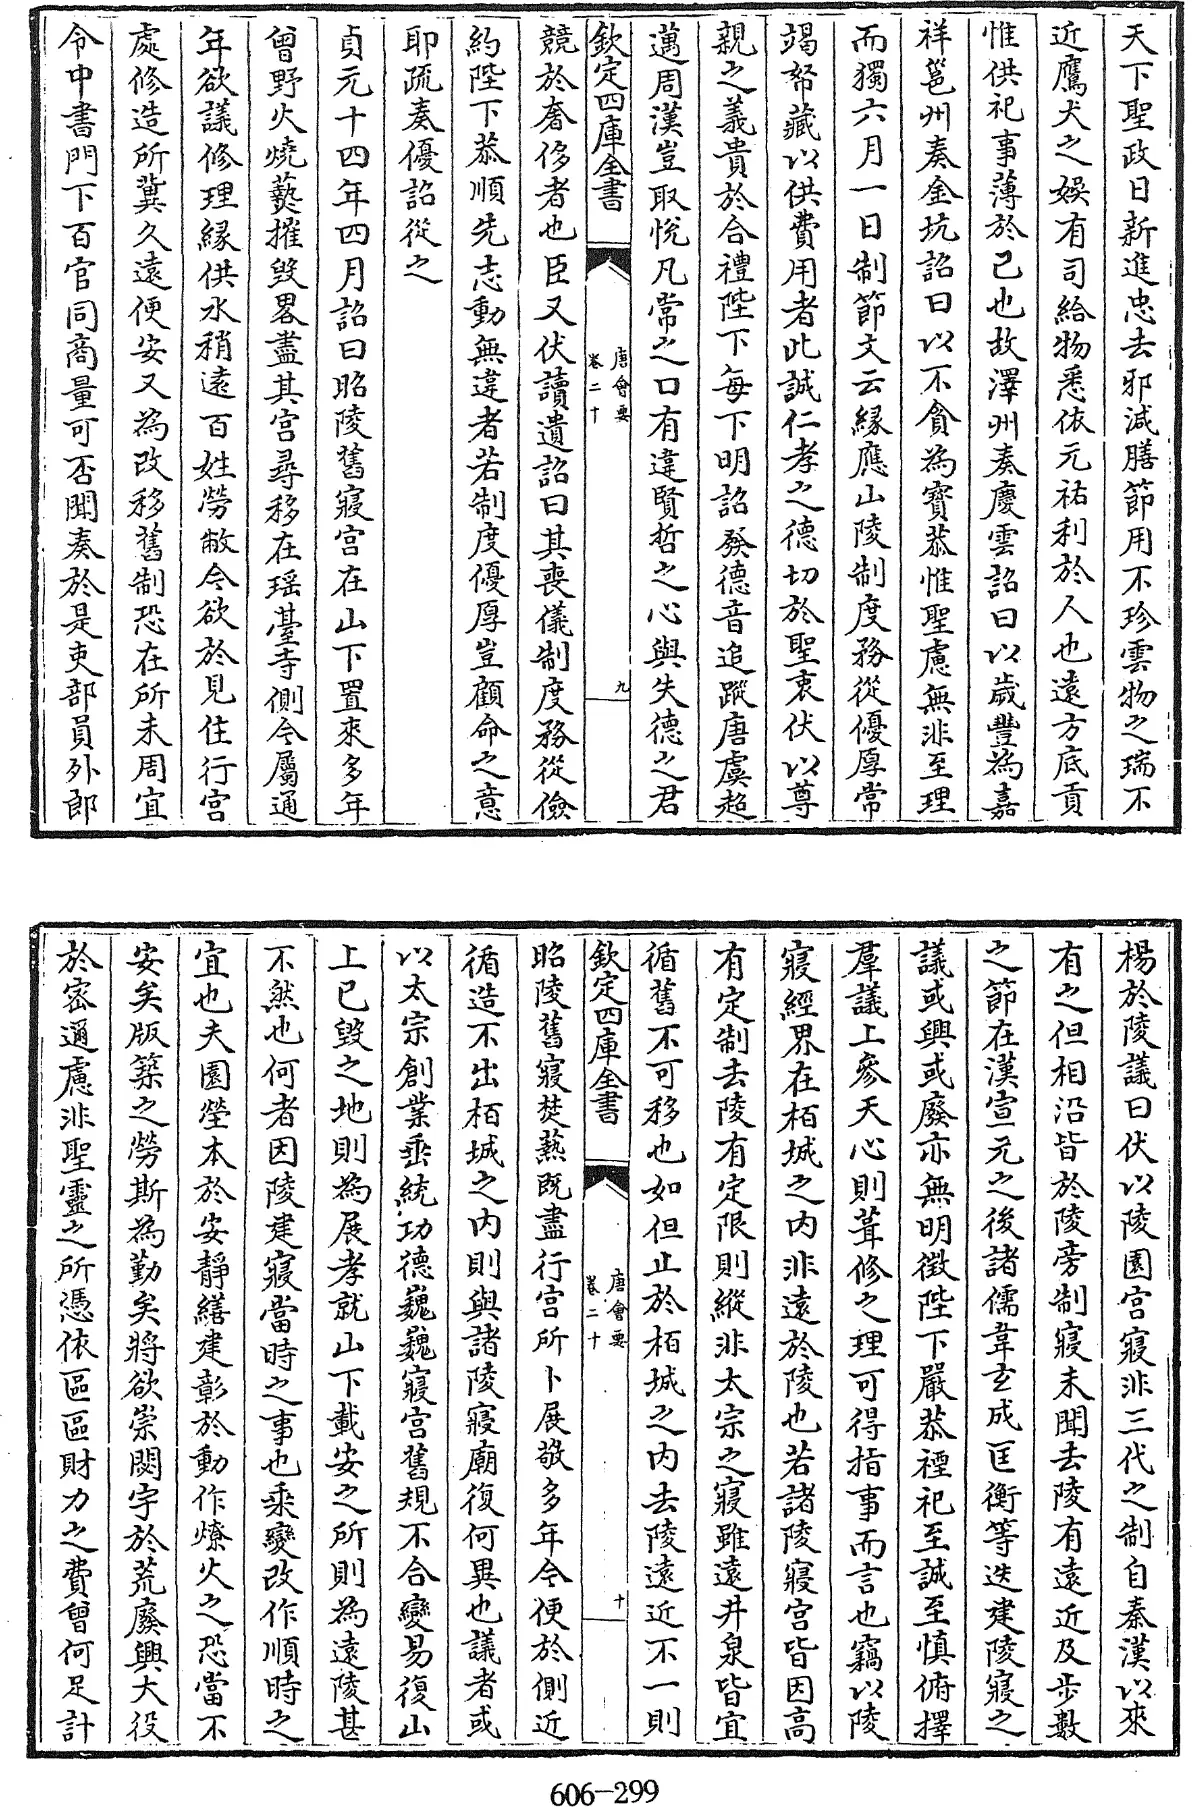 天下聖政日新進忠去邪減膳節用不珍雲物之瑞不
近鷹犬之娛有司給物悉依元祐利於人也遠方底貢
惟供祀事薄於己也故澤州奏慶雲詔曰以歲豐為嘉
祥邕州奏金坑詔曰以不貪為寶恭惟聖慮無非至理
而獨六月一日制節文云緣應山陵制度務從優厚當
竭帑藏以供費用者此誠仁孝之德切於聖衷伏以尊
親之義貴於合禮陛下每下明詔發德音追蹤唐虞超
邁周漢豈取悅凡常之口有違賢哲之心與失德之君
欽定四庫全書
唐會要
卷二十
九
競於奢侈者也臣又伏讀遺詔曰其喪儀制度務從儉
約陛下恭順先志動無違者若制度優厚豈顧命之意
耶疏奏優詔從之
貞元十四年四月詔曰昭陵舊寢宮在山下置來多年
曾野火燒爇摧毀畧盡其宮尋移在瑤臺寺側今屬通
年欲議修理緣供水稍遠百姓勞敝今欲於見住行宮
處修造所冀久遠便安又為改移舊制恐在所未周宜
令中書門下百官同商量可否聞奏於是吏部員外郎
楊於陵議曰伏以陵園宮寢非三代之制自秦漢以來
有之但相沿皆於陵旁制寢未聞去陵有遠近及步數
之節在漢宣元之後諸儒韋玄成匡衡等迭建陵寢之
議或興或廢亦無明徵陛下嚴恭禋祀至誠至慎俯擇
羣議上參天心則葺修之理可得指事而言也竊以陵
寢經界在栢城之內非遠於陵也若諸陵寢宮皆因高
有定制去陵有定限則縱非太宗之寢雖遠井泉皆宜
循舊不可移也如但止於栢城之內去陵遠近不一則
欽定四庫全書
唐會要
卷二十
十
昭陵舊寢焚爇既盡行宮所卜展敬多年今便於側近
循造不出栢城之內則與諸陵寢廟復何異也議者或
以太宗創業垂統功德巍巍寢宮舊規不合變易復山
上已毀之地則為展孝就山下載安之所則為遠陵甚
不然也何者因陵建寢當時之事也乘變改作順時之
宜也夫園塋本於安靜繕建彰於動作燎火之恐當不
安矣版築之勞斯為勤矣將欲崇閎宇於荒廢興大役
於密邇慮非聖靈之所憑依區區財力之費曾何足計
606-299